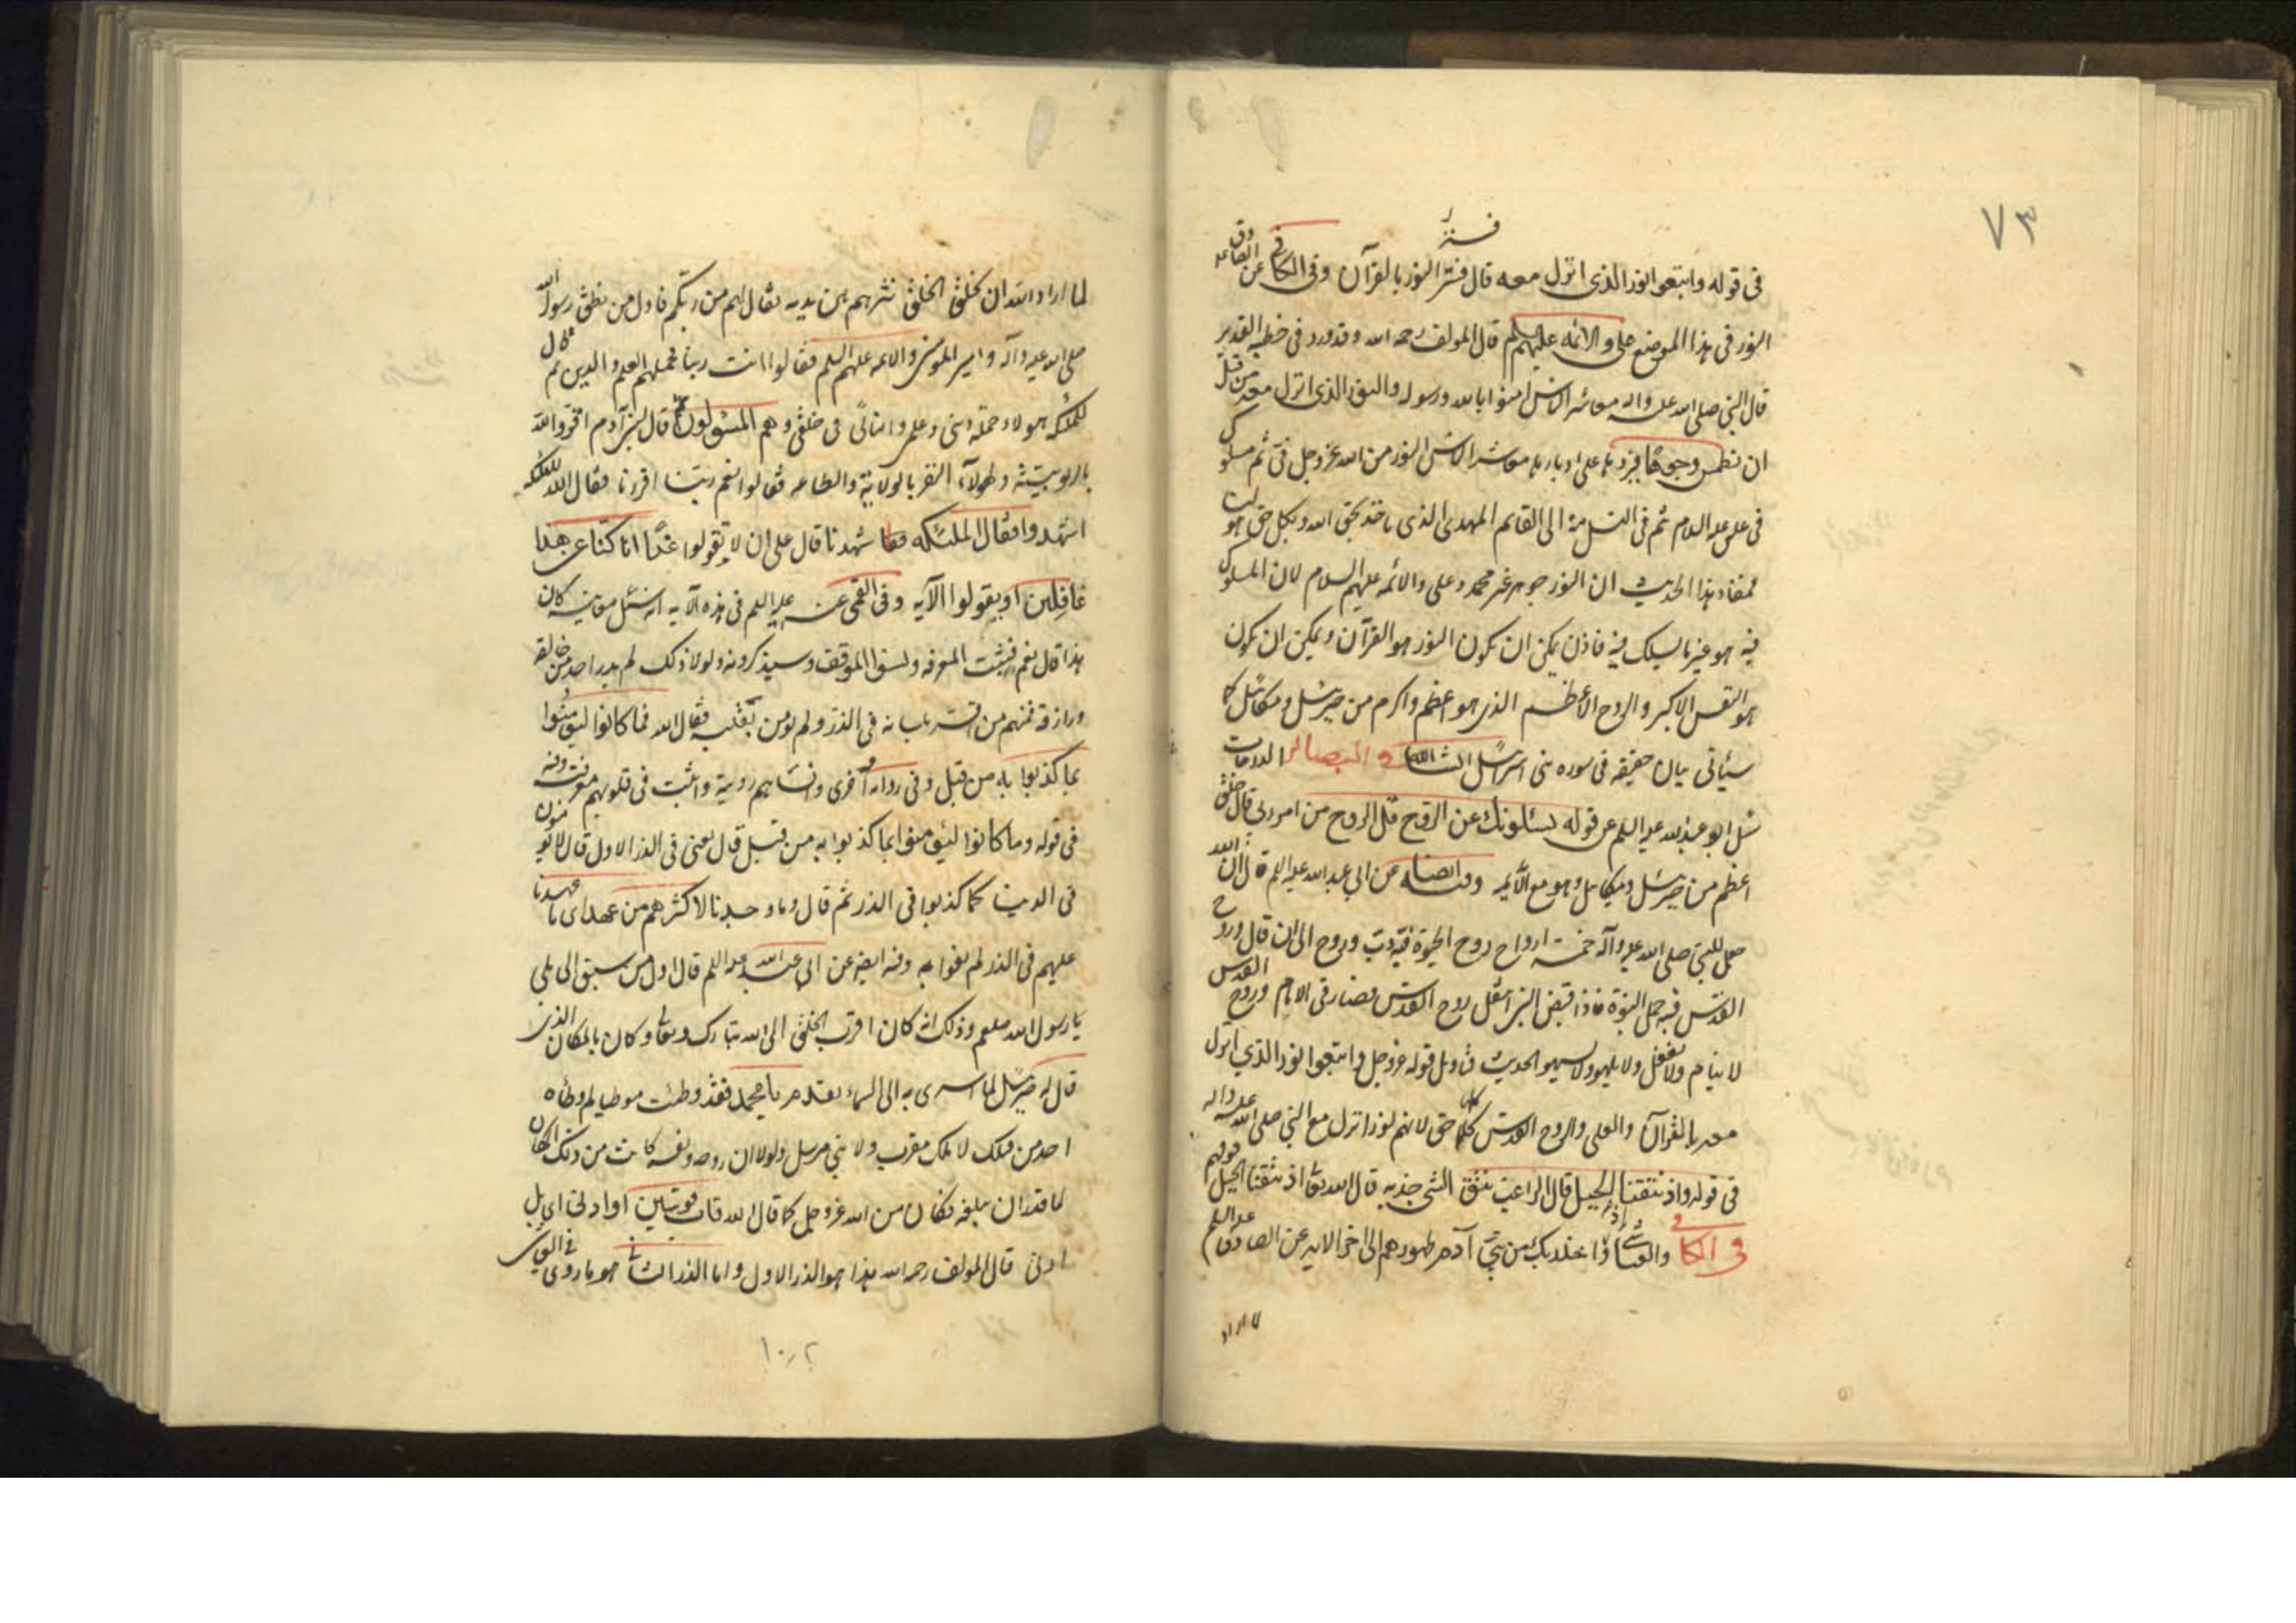 ٧٣
فسّر
في قوله واتبعوا النور الذي انزل معه قال فسّر النور بالقرآن وفي الكافي عن
النور في هذا الموضع علي والائمه عليهم السلم قال المولف رحمه الله وقد ورد في خطبه الغدير
قال النبي صلى الله عليه واله معاشر الناس امنوا بالله ورسوله والنور الذي انزل معه من قبل
ان نطمس وجوها فنردها على ادبارها معاشر الناس النور من الله عز وجل فيّ ثم مسلوك
في علي عليه السلام ثم في النسل منه الى القايم المهدي الذي ياخذ بحق الله وبكل حق هو لنا
فمفاد هذا الحديث ان النور جوهر غير محمد وعلي والائمه عليهم السلام لان المسلوك
فيه هو غير ما يسلك فيه فاذن يمكن ان يكون النور هو القرآن ويمكن ان يكون
هو النفس الاكبر والروح الأعظم الذي هو اعظم واكرم من جبرئيل وميكائيل كما
سيأتي بيان حقيقه في سوره بني اسرائيل انشاالله وفي البصائر الدرجات
سئل ابو عبد الله عليه السلم عن قوله يسئلونك عن الروح قل الروح من امر ربي قال خلق
اعظم من جبرئيل وميكائيل وهو مع الأئمه وفيه ايضا عن ابي عبد الله عليه السلم قال ان الله
جعل للنبي صلى الله عليه وآله خمسة ارواح روح الحيوة فبه دبّ وروح الى ان قال وروح
القدس فبه حمل النبوة فاذا قبض النبي انتقل روح القدس فصار في الامام وروح القدس
لا ينام ولا يغفل ولا يلهو ولا يسهو الحديث فتأويل قوله عز وجل واتبعوا النور الذي انزل
معه بالقرآن والعلي والروح القدس كلها حق لانهم نور انزل مع النبي صلى الله عليه واله
في قوله واذ نتقنا الجبل قال الراغب نتق الشي جذبه قال الله تعا اذ نتقنا الجبل فوقهم
في الكافي والعياشي واذ اخذ ربك من بني آدم من ظهورهم الى اخر الايه عن الصادق عليه السلم
لما اراد
لما اراد الله ان يخلق الخلق نثرهم بين يديه فقال لهم من ربكم فاول من نطق رسول الله
صلى الله عليه وآله وامير المومنين والائمه عليهم السلم فقالوا انت ربنا فحملهم العلم والدين ثم قال
للملئكه هولاء حملة ديني وعلمي وامنائي في خلقي وهم المسئولون ثم قال لبني آدم اقروا لله
بالربوبيته ولهولآء النفر بالولاية والطاعه فقالوا نعم ربنا اقررنا فقال الله للملئكه
اشهدوا فقال الملئكه شهدنا قال على ان لا يقولوا غدًا انا كنا عن هذا
غافلين او يقولوا الآيه وفي القمي عنه عليه السلم في هذه الآيه انه سئل معاينه كان
هذا قال نعم فثبتت المعرفه ونسوا الموقف وسيذكرونه ولولا ذلك لم يدر احد من خالقه
ورازقه فمنهم من اقر بلسانه في الذر ولم يومن بقلبه فقال الله فما كانوا ليؤمنوا
بما كذبوا به من قبل وفي رواية أخرى وانساهم رويته واثبت في قلوبهم معرفته وفيه
في قوله وما كانوا ليؤمنوا بما كذبوا به من قبل قال يعني في الذر الاول قال لا يؤمنون
في الدنيا كما كذبوا في الذر ثم قال وما وجدنا لاكثرهم من عهد اي ما عهدنا
عليهم في الذر لم يفوا به وفيه ايضا عن ابي عبد الله عليه السلم قال اول من سبق الى بلى
يا رسول الله صلعم وذلك انه كان اقرب الخلق الى الله تبارك وتعالى وكان بالمكان الذي
قال له جبرئيل لما اسرى به الى السماء تقدم يا محمد فقد وطئت موطيا لم وطأه
احد من قبلك لا ملك مقرب ولا نبي مرسل ولولا ان روحه ونفسه كانت من ذلك المكان
لما قدر ان يبلغه فكان من الله عز وجل كما قال الله قاب قوسين او ادنى اي بل
ادنى قال المولف رحمه الله هذا هو الذر الاول واما الذر الثاني هو ما روي في